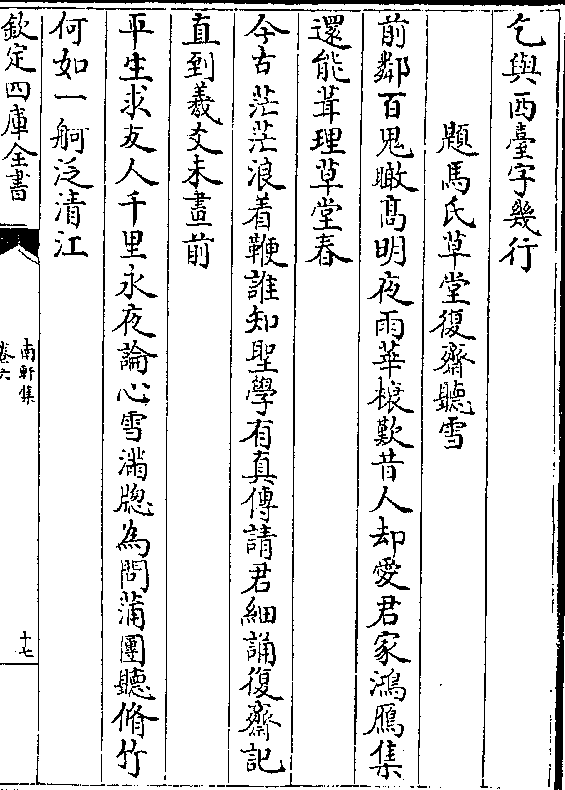 乞與西臺字幾行
題馬氏草堂復齋聽雪
前鄰百鬼瞰髙明夜雨華榱歎昔人却愛君家鴻鴈集
還能葺理草堂春
今古茫茫浪着鞭誰知聖學有真傳請君細誦復齋記
直到羲爻未畫前
平生求友人千里永夜論心雪滿牕為問蒲團聽脩竹
何如一舸泛清江
欽定四庫全書
南軒集
卷六
十七